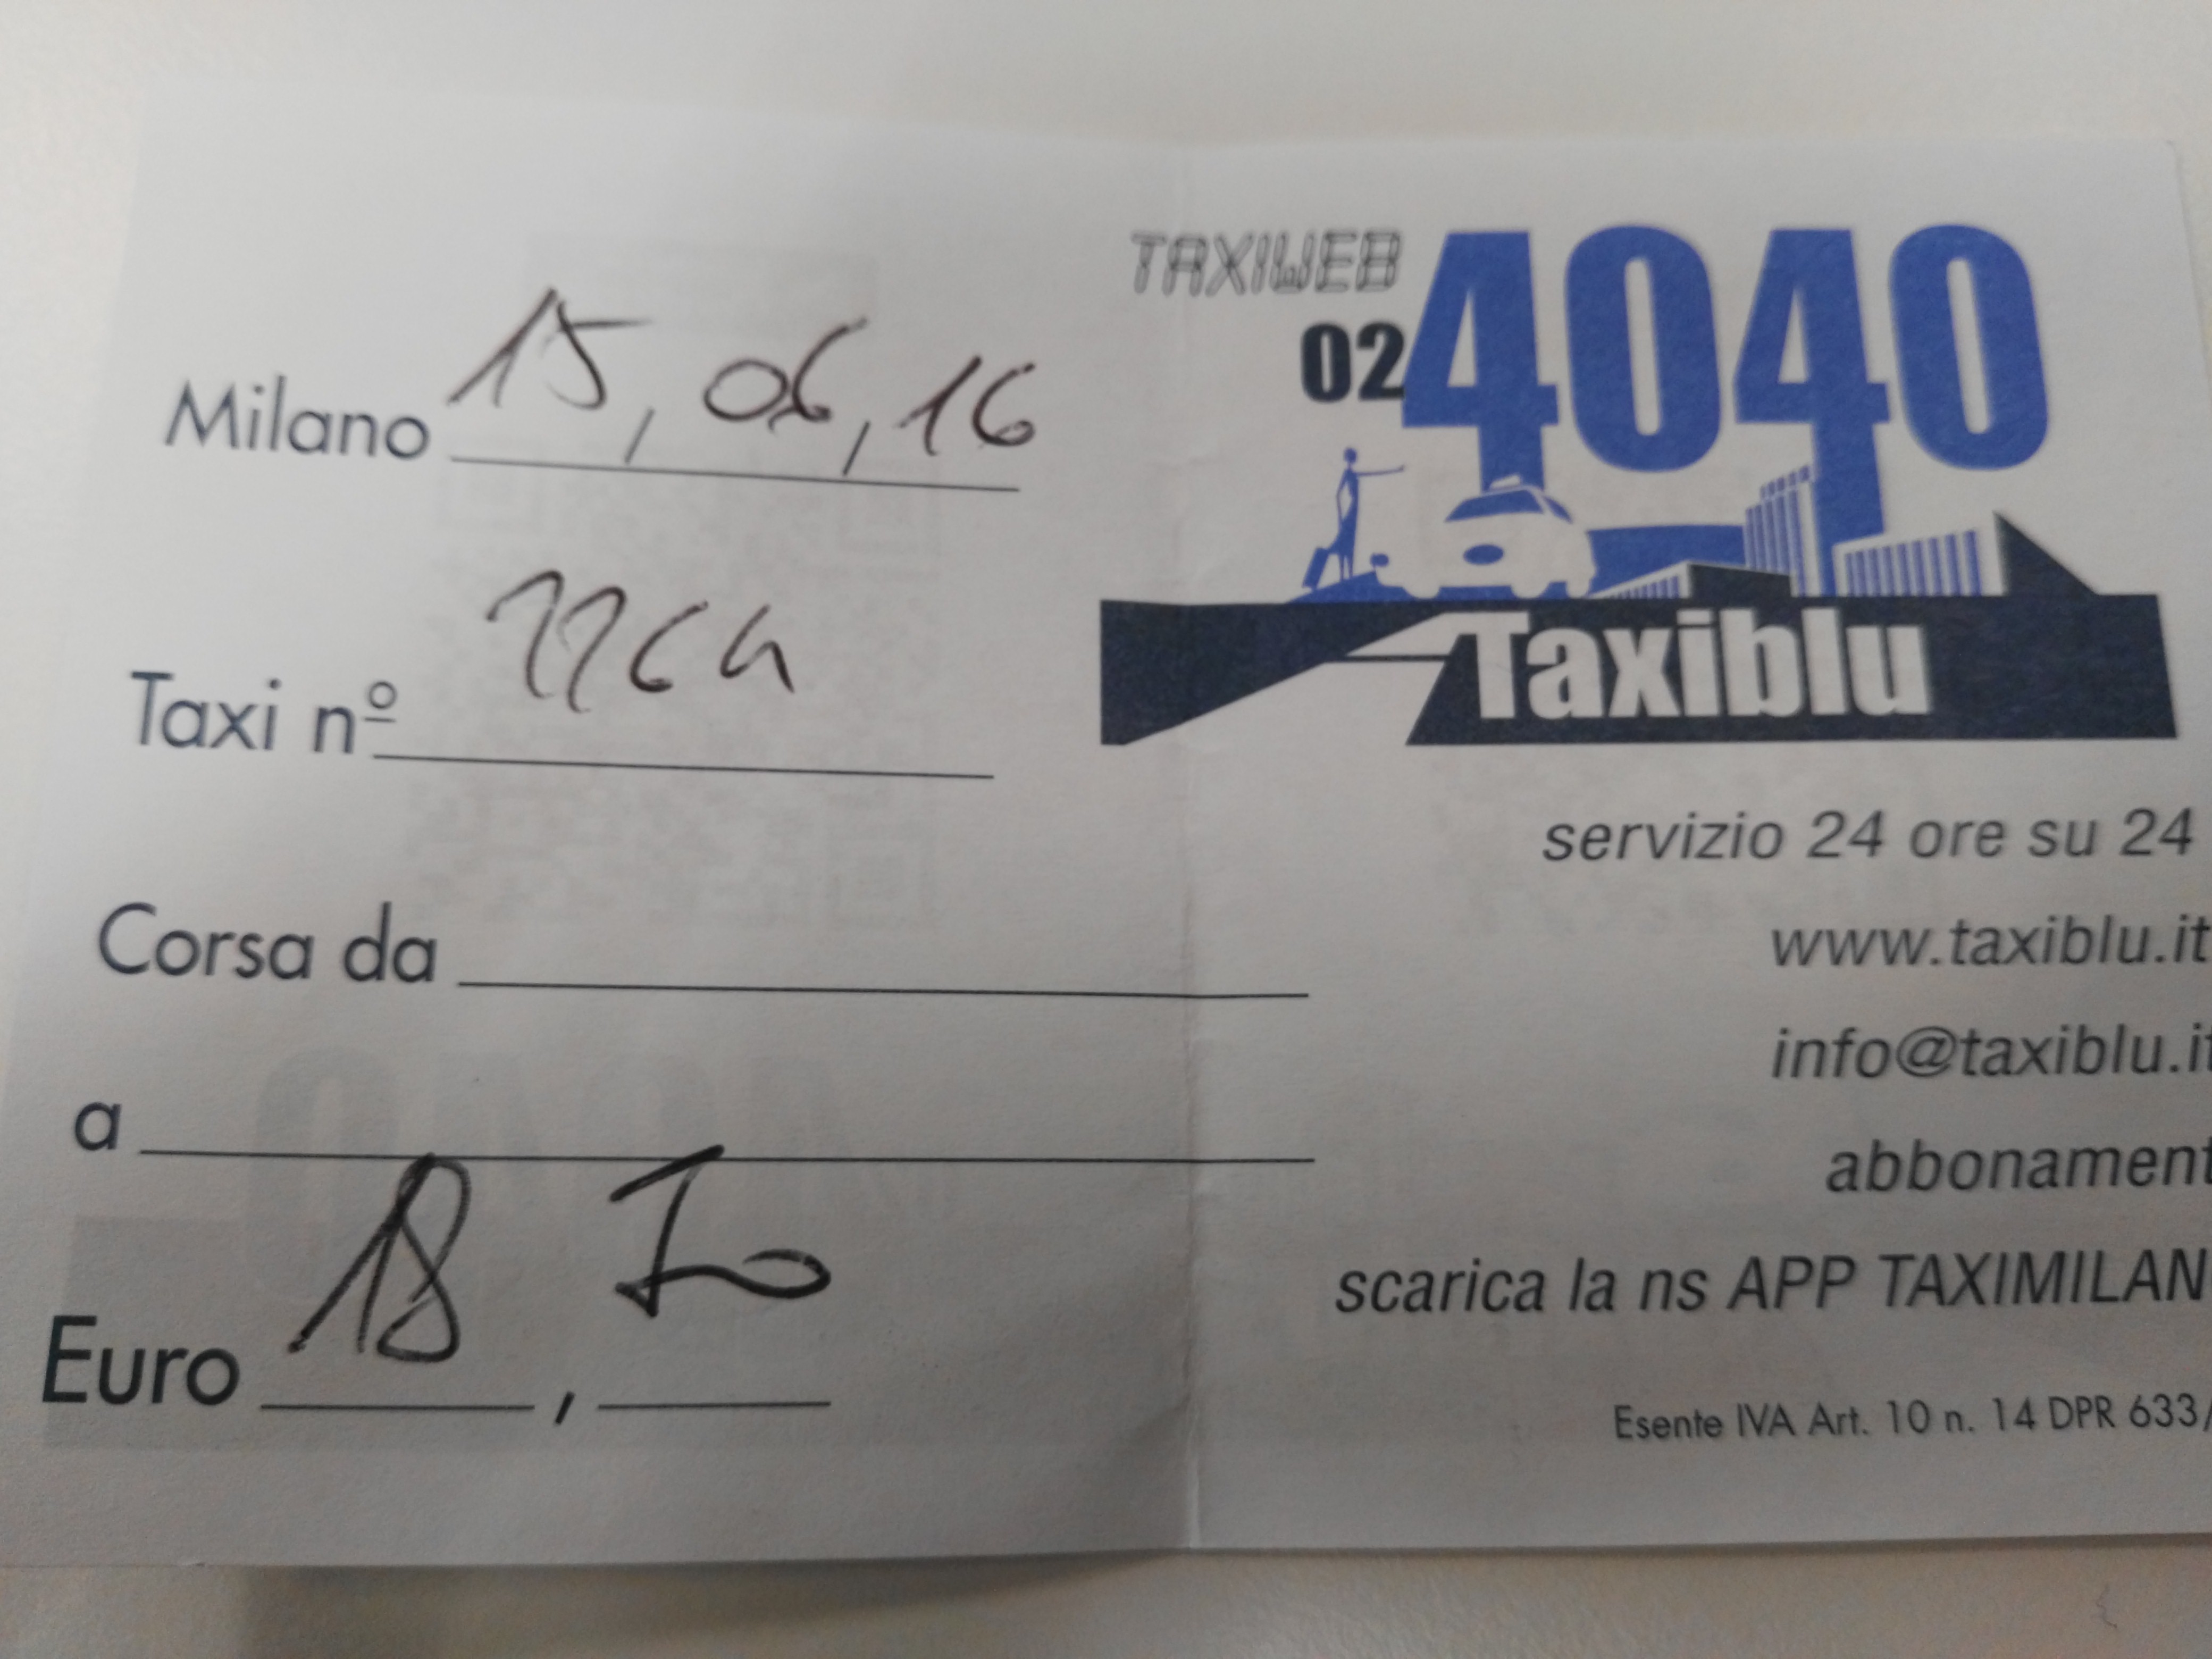 Milano 15,06,16
Taxi nº
Corsa da
a
Euro 18,70
TAXIWEB
02 4040
Taxiblu
servizio 24 ore su 24
www.taxiblu.it
info@taxiblu.it
abbonament
scarica la ns APP TAXIMILAN
Esente IVA Art. 10 n. 14 DPR 633/